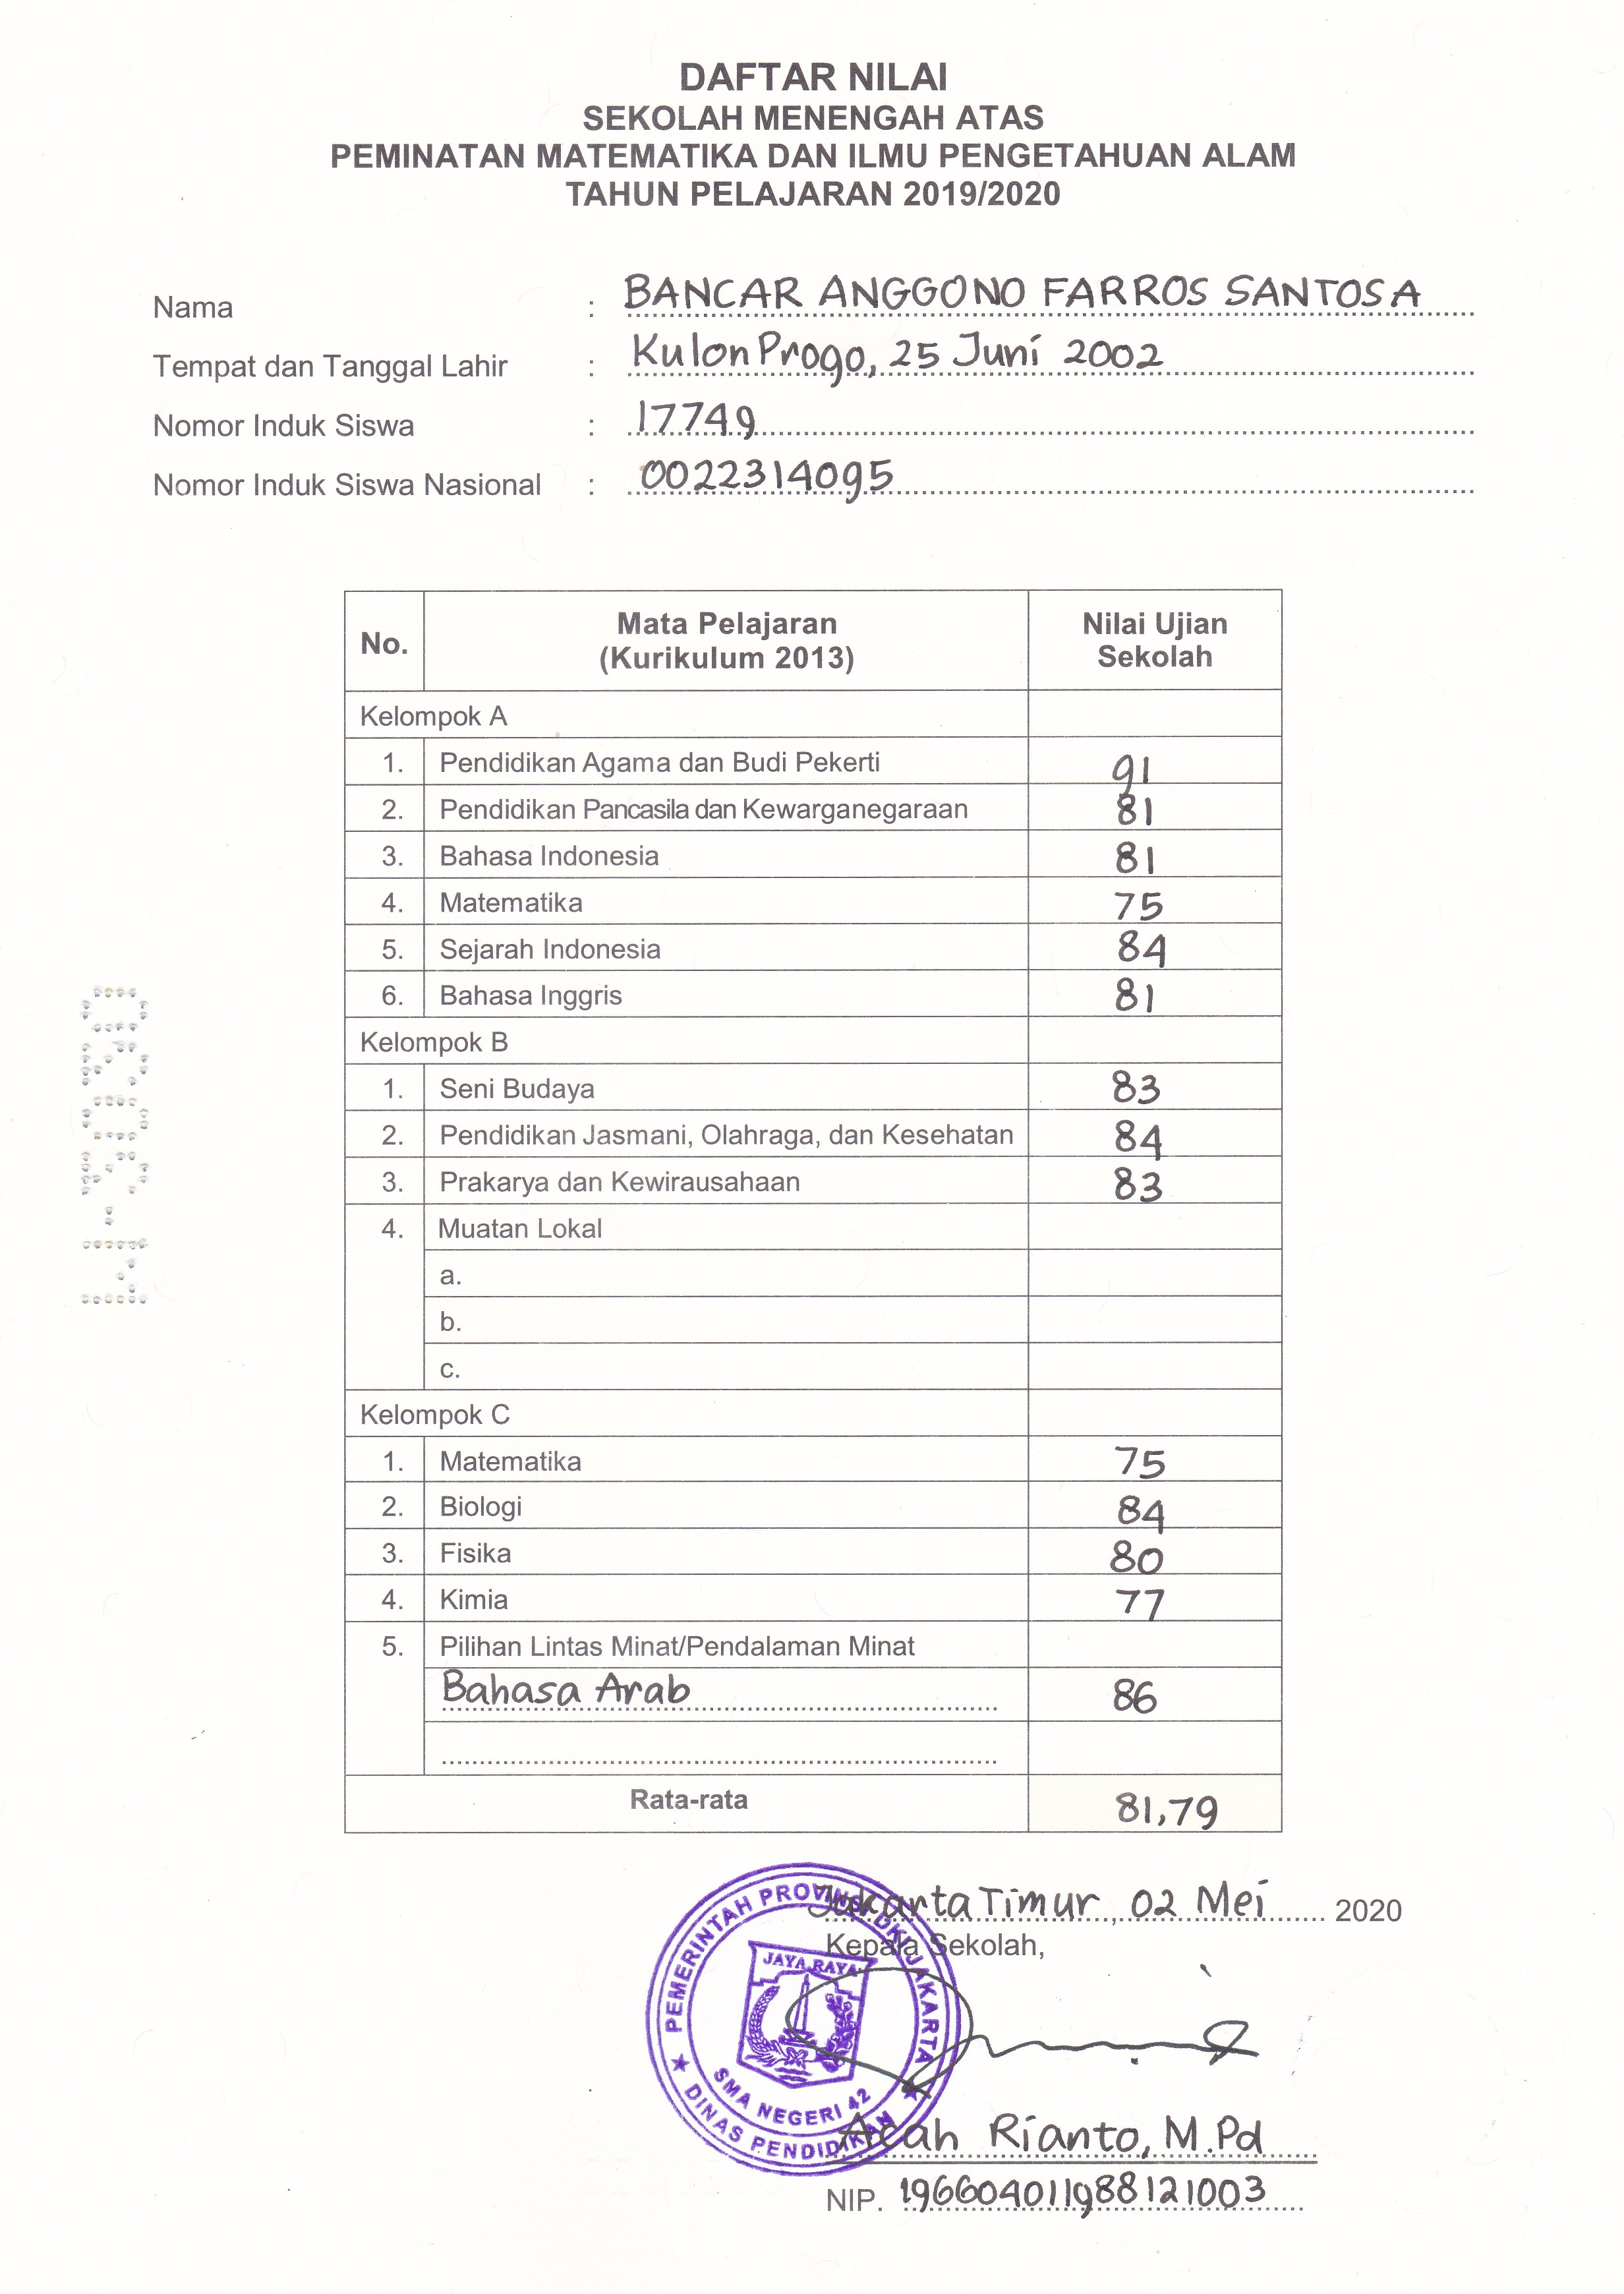 DAFTAR NILAI
SEKOLAH MENENGAH ATAS
PEMINATAN MATEMATIKA DAN ILMU PENGETAHUAN ALAM
TAHUN PELAJARAN 2019/2020
Nama : BANCAR ANGGONO FARROS SANTOSA
Tempat dan Tanggal Lahir : Kulon Progo, 25 Juni 2002
Nomor Induk Siswa : 17749
Nomor Induk Siswa Nasional : 0022314095
No. Mata Pelajaran (Kurikulum 2013) Nilai Ujian Sekolah
Kelompok A
1. Pendidikan Agama dan Budi Pekerti 91
2. Pendidikan Pancasila dan Kewarganegaraan 81
3. Bahasa Indonesia 81
4. Matematika 75
5. Sejarah Indonesia 84
6. Bahasa Inggris 81
Kelompok B
1. Seni Budaya 83
2. Pendidikan Jasmani, Olahraga, dan Kesehatan 84
3. Prakarya dan Kewirausahaan 83
4. Muatan Lokal
a.
b.
c.
Kelompok C
1. Matematika 75
2. Biologi 84
3. Fisika 80
4. Kimia 77
5. Pilihan Lintas Minat/Pendalaman Minat
Bahasa Arab 86
Rata-rata 81,79
Jakarta Timur, 02 Mei 2020
Kepala Sekolah,
PEMERINTAH PROVINSI DKI JAKARTA
JAYA RAYA
SMA NEGERI 42
DINAS PENDIDIKAN
Acah Rianto, M.Pd
NIP. 196604011988121003